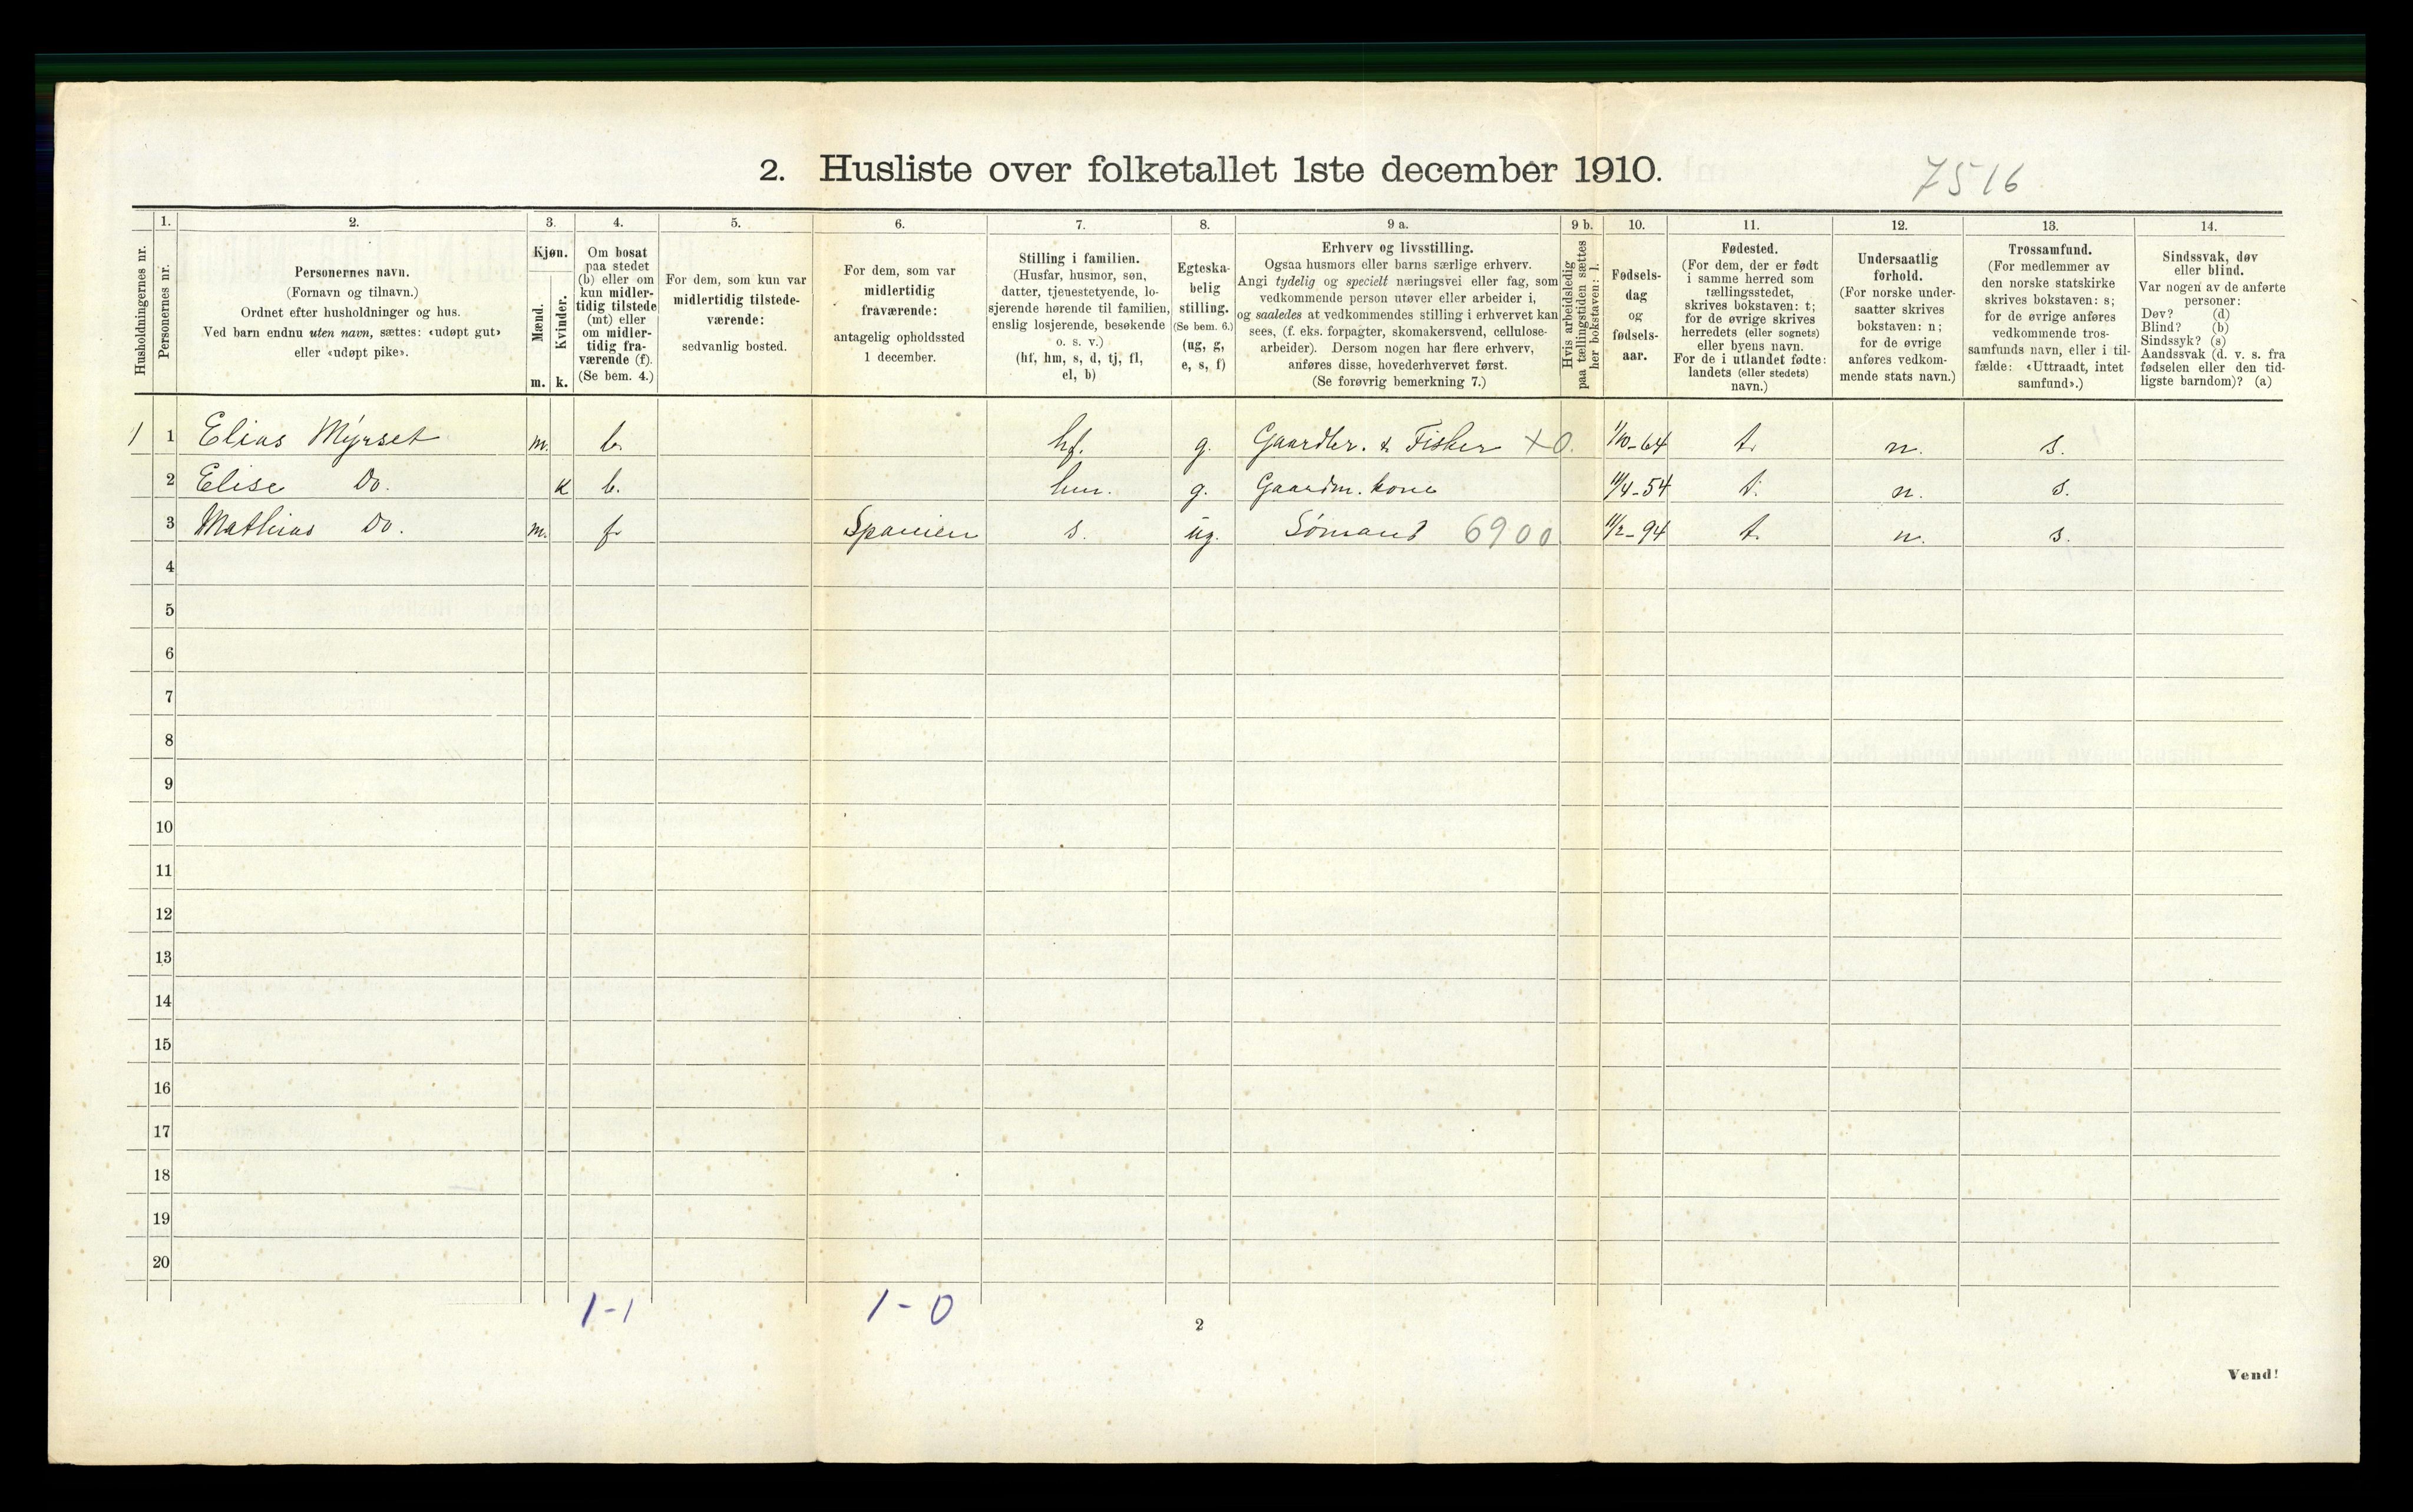 2. Husliste over folketallet 1ste december 1910.
7516
Husholdningernes nr.
1. Personernes nr.
2. Personernes navn. (Fornavn og tilnavn.) Ordnet efter husholdninger og hus. Ved barn endnu uten navn, sættes: «udøpt gut» eller «udøpt pike».
3. Kjøn. Mænd. m. Kvinder. k.
4. Om bosat paa stedet (b) eller om kun midlertidig tilstede (mt) eller om midlertidig fraværende (f). (Se bem. 4.)
5. For dem, som kun var midlertidig tilstedeværende: sedvanlig bosted.
6. For dem, som var midlertidig fraværende: antagelig opholdssted 1 december.
7. Stilling i familien. (Husfar, husmor, søn, datter, tjenestetyende, losjerende hørende til familien, enslig losjerende, besøkende o. s. v.) (hf, hm, s, d, tj, fl, el, b)
8. Egteskabelig stilling. (Se bem. 6.) (ug, g, e, s, f)
9 a. Erhverv og livsstilling. Ogsaa husmors eller barns særlige erhverv. Angi tydelig og specielt næringsvei eller fag, som vedkommende person utøver eller arbeider i, og saaledes at vedkommendes stilling i erhvervet kan sees, (f. eks. forpagter, skomakersvend, cellulosearbeider). Dersom nogen har flere erhverv, anføres disse, hovederhvervet først. (Se forøvrig bemerkning 7.)
9 b. Hvis arbeidsledig paa tællingstiden sættes her bokstaven: l.
10. Fødselsdag og fødselsaar.
11. Fødested. (For dem, der er født i samme herred som tællingsstedet, skrives bokstaven: t; for de øvrige skrives herredets (eller sognets) eller byens navn. For de i utlandet fødte: landets (eller stedets) navn.)
12. Undersaatlig forhold. (For norske undersaatter skrives bokstaven: n; for de øvrige anføres vedkommende stats navn.)
13. Trossamfund. (For medlemmer av den norske statskirke skrives bokstaven: s; for de øvrige anføres vedkommende trossamfunds navn, eller i tilfælde: «Uttraadt, intet samfund».)
14. Sindssvak, døv eller blind. Var nogen av de anførte personer: Døv? (d) Blind? (b) Sindssyk? (s) Aandssvak (d. v. s. fra fødselen eller den tidligste barndom)? (a)
1 1 Elias Myrset m. b. hf. g. Gaardbr. & Fisker X0. 1/10-64 t. n. s.
2 Elise Do. k b. hm. g. Gaardm. kone 11/4-54 t. n. s.
3 Mathias Do. m. f. Spanien s. ug. Sømand 6900 11/2-94 t. n. s.
4
5
6
7
8
9
10
11
12
13
14
15
16
17
18
19
20
1-1 1-0
2
Vend!